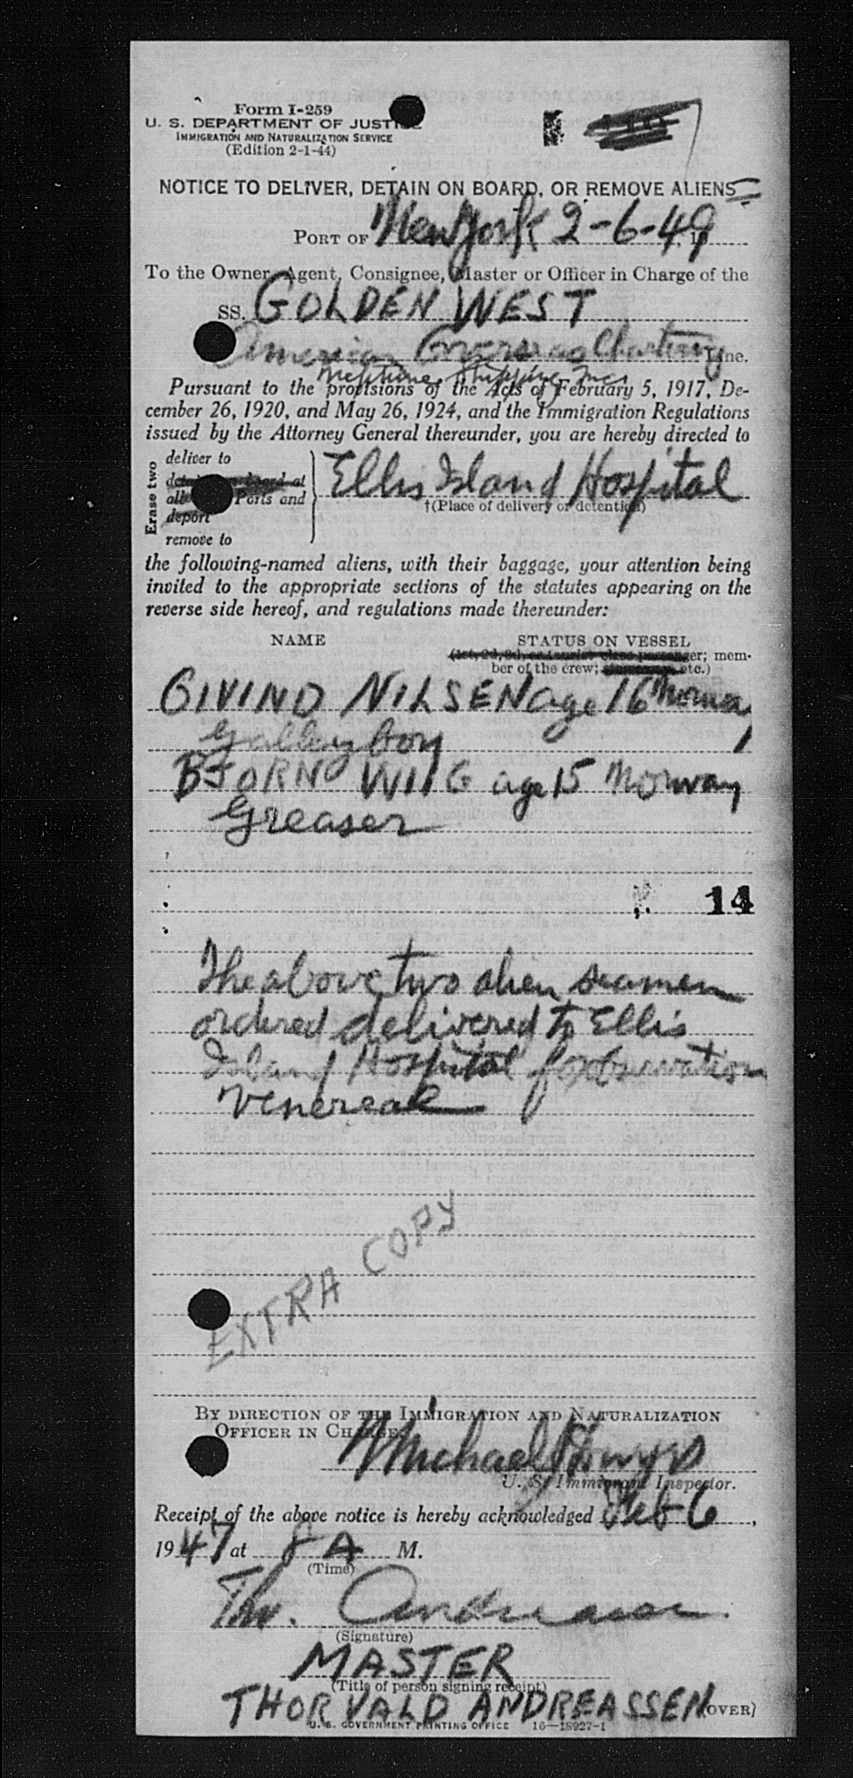 Form I-259
U. S. DEPARTMENT OF JUSTICE
IMMIGRATION AND NATURALIZATION SERVICE
(Edition 2-1-44)
NOTICE TO DELIVER, DETAIN ON BOARD, OR REMOVE ALIENS
PORT OF New York 2-6-49, 19
To the Owner, Agent, Consignee, Master or Officer in Charge of the
SS. GOLDEN WEST
American Overseas Charting Line.
Neptune Shipping Inc
Pursuant to the provisions of the Acts of February 5, 1917, De-
cember 26, 1920, and May 26, 1924, and the Immigration Regulations
issued by the Attorney General thereunder, you are hereby directed to
Erase two
deliver to
detain on board at
all Ports and
deport
remove to
Ellis Island Hospital
†(Place of delivery or detention)
the following-named aliens, with their baggage, your attention being
invited to the appropriate sections of the statutes appearing on the
reverse side hereof, and regulations made thereunder:
NAME STATUS ON VESSEL
(1st, 2d, 3d, or tourist class passenger; mem-
ber of the crew; etc.)
GIVIND NILSEN age 16 Norway
Galley boy
BJORN WIIG age 15 Norway
Greaser
14
The above two alien seamen
ordered delivered to Ellis
Island Hospital for observation
Venereal
EXTRA COPY
BY DIRECTION OF THE IMMIGRATION AND NATURALIZATION
OFFICER IN CHARGE.
Michael
U. S. Immigrant Inspector.
Receipt of the above notice is hereby acknowledged Feb 6,
1947 at 8 A M.
(Time)
Thv. Andreassen
(Signature)
MASTER
(Title of person signing receipt)
THORVALD ANDREASSEN
(OVER)
U. S. GOVERNMENT PRINTING OFFICE 16—18927-1